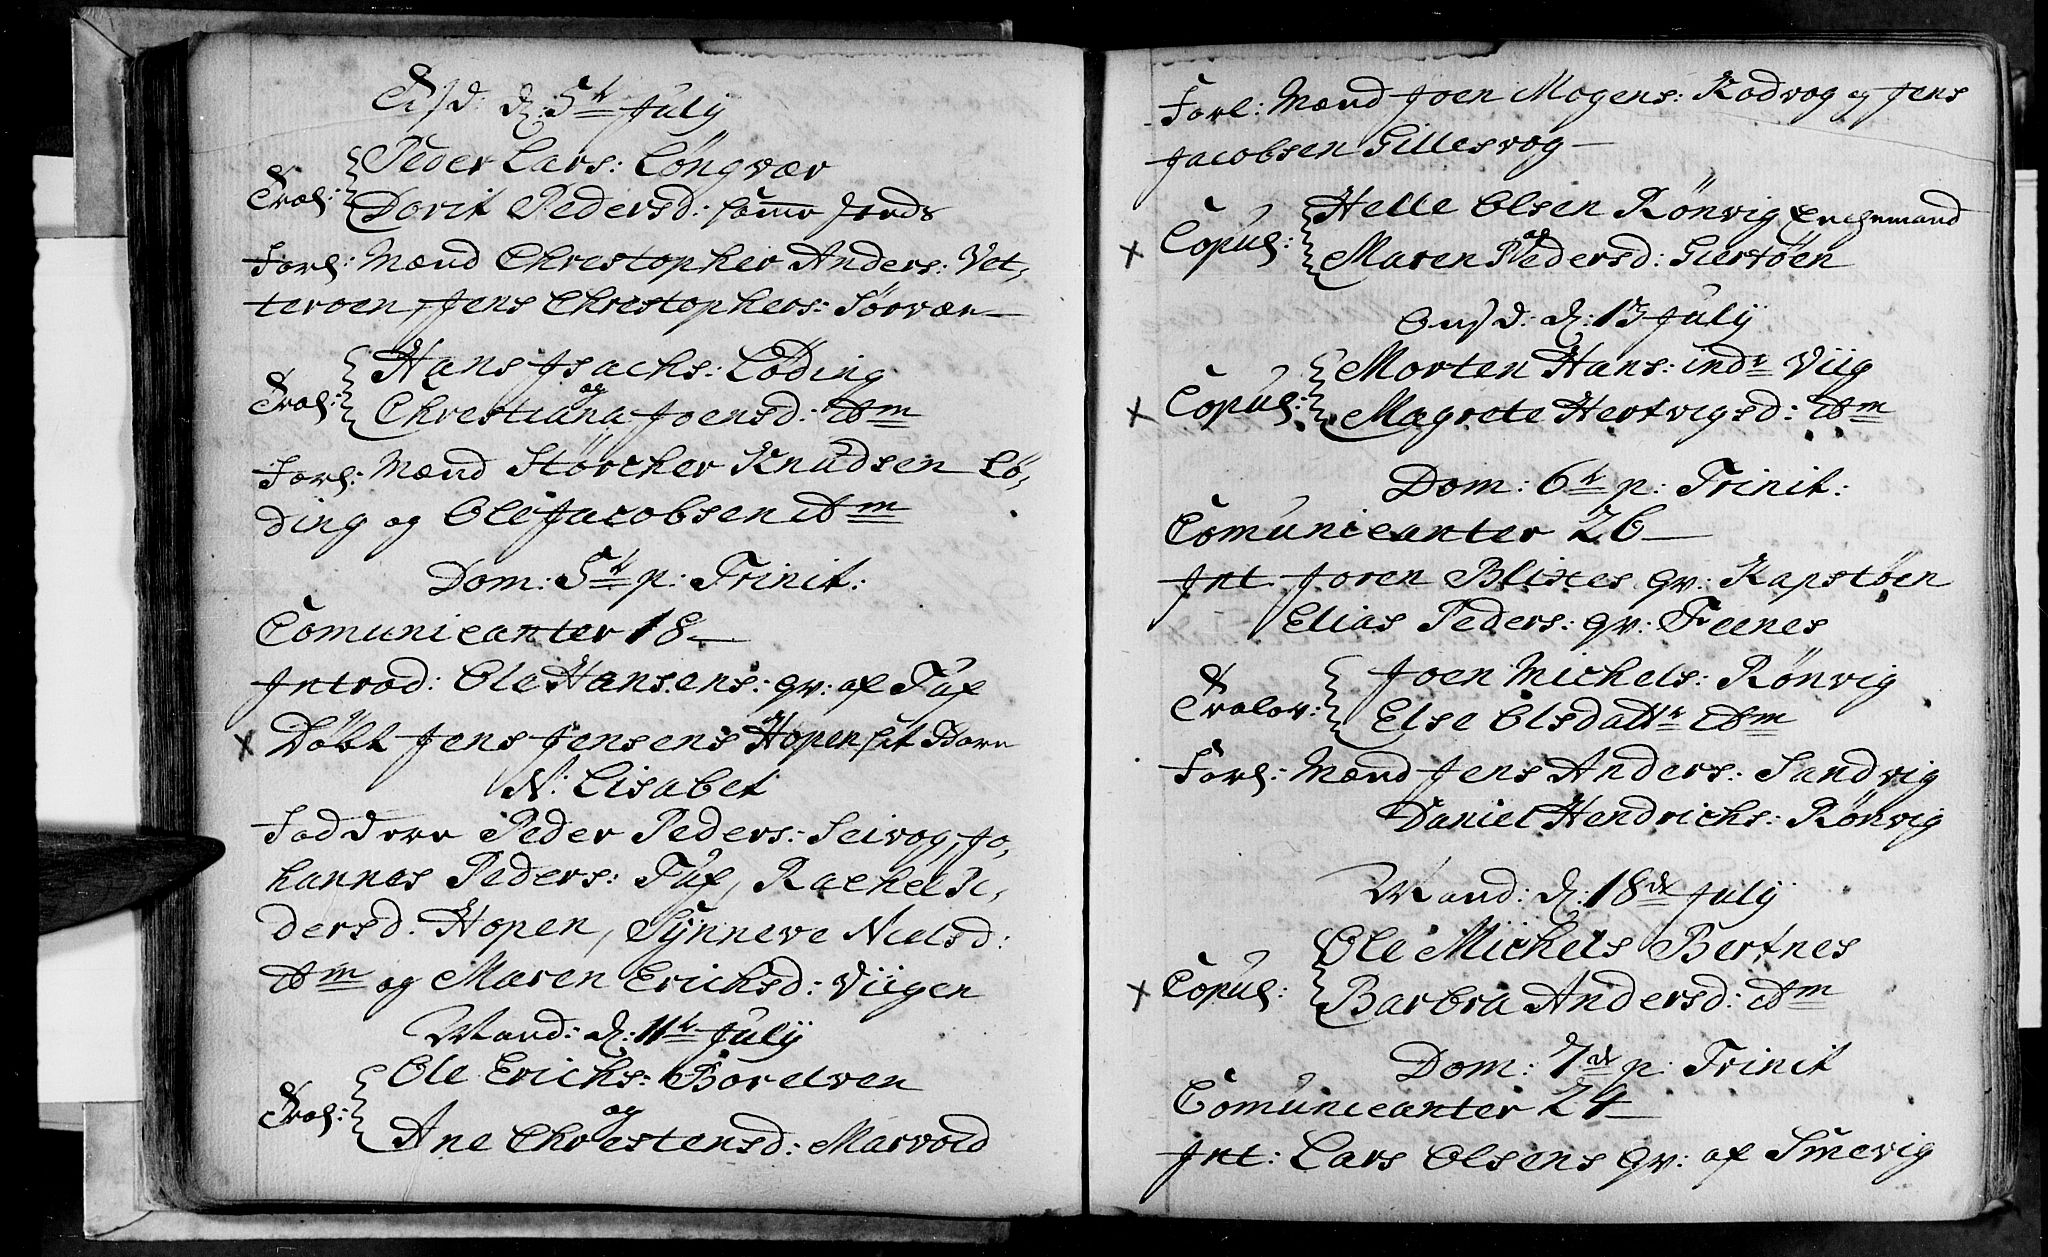 Tisd: d: 5te July
Peder Lars: Løngvær
Trol: Dorit Pedersd: samme steds
Forl: Mænd Chrestopher Anders: Vet,
terøen, Jens Chrestophers: Sørvær
Hans Isachs: Løding
og
Trol: Chrestiana Joensd: ibdm
Forl: Mænd Störcher Knudsen Lø,
ding og Ole Jacobsen ibdm
Dom: 5te p: Trinit:
Comunicanter 18
Introd: Ole Hansens: qv: af Tuf
x Døbt Jens Jensens Hopen sit Barn
N: Lisabet
Faddere Peder Peders: Seivog, Jo,
hannes Peders: Tuf, Rachel Pe,
dersd. Hopen, Synneve Nielsd:
ibdm og Maren Erichsd: Viigen
Mand: d: 11te July
Ole Erichs: Borelven
og
Trol: Ane Chrestensd: Marvold
Forl: Mænd Joen Mogens: Kodvog og Jens
Jacobsen Gillesvog
Helle Olsen Rønvig Enchemand
og
x Copul: Maren Pedersd: Giertøen
Onsd: d: 13 July
Morten Hans: indr Viig
x Copul: Magrete Hertvigsd: ibdm
Dom: 6te p: Trinit:
Comunicanter 26
Int. Joren Blixes qv: Kapstøen
Elias Peders: qv: Feenes
Joen Michels: Rønvig
Trolov: Else Olsdattr ibdm
Forl: Mænd Jens Anders: Sandvig
Daniel Hendrichs: Rønvig
Mand: d: 18de July
Ole Michels Bertnes
x Copul: Barbra Andersd: ibdm
Dom: 7de p: Trinit
Comunicanter 24
Int: Lars Olsens qv: af Smevig